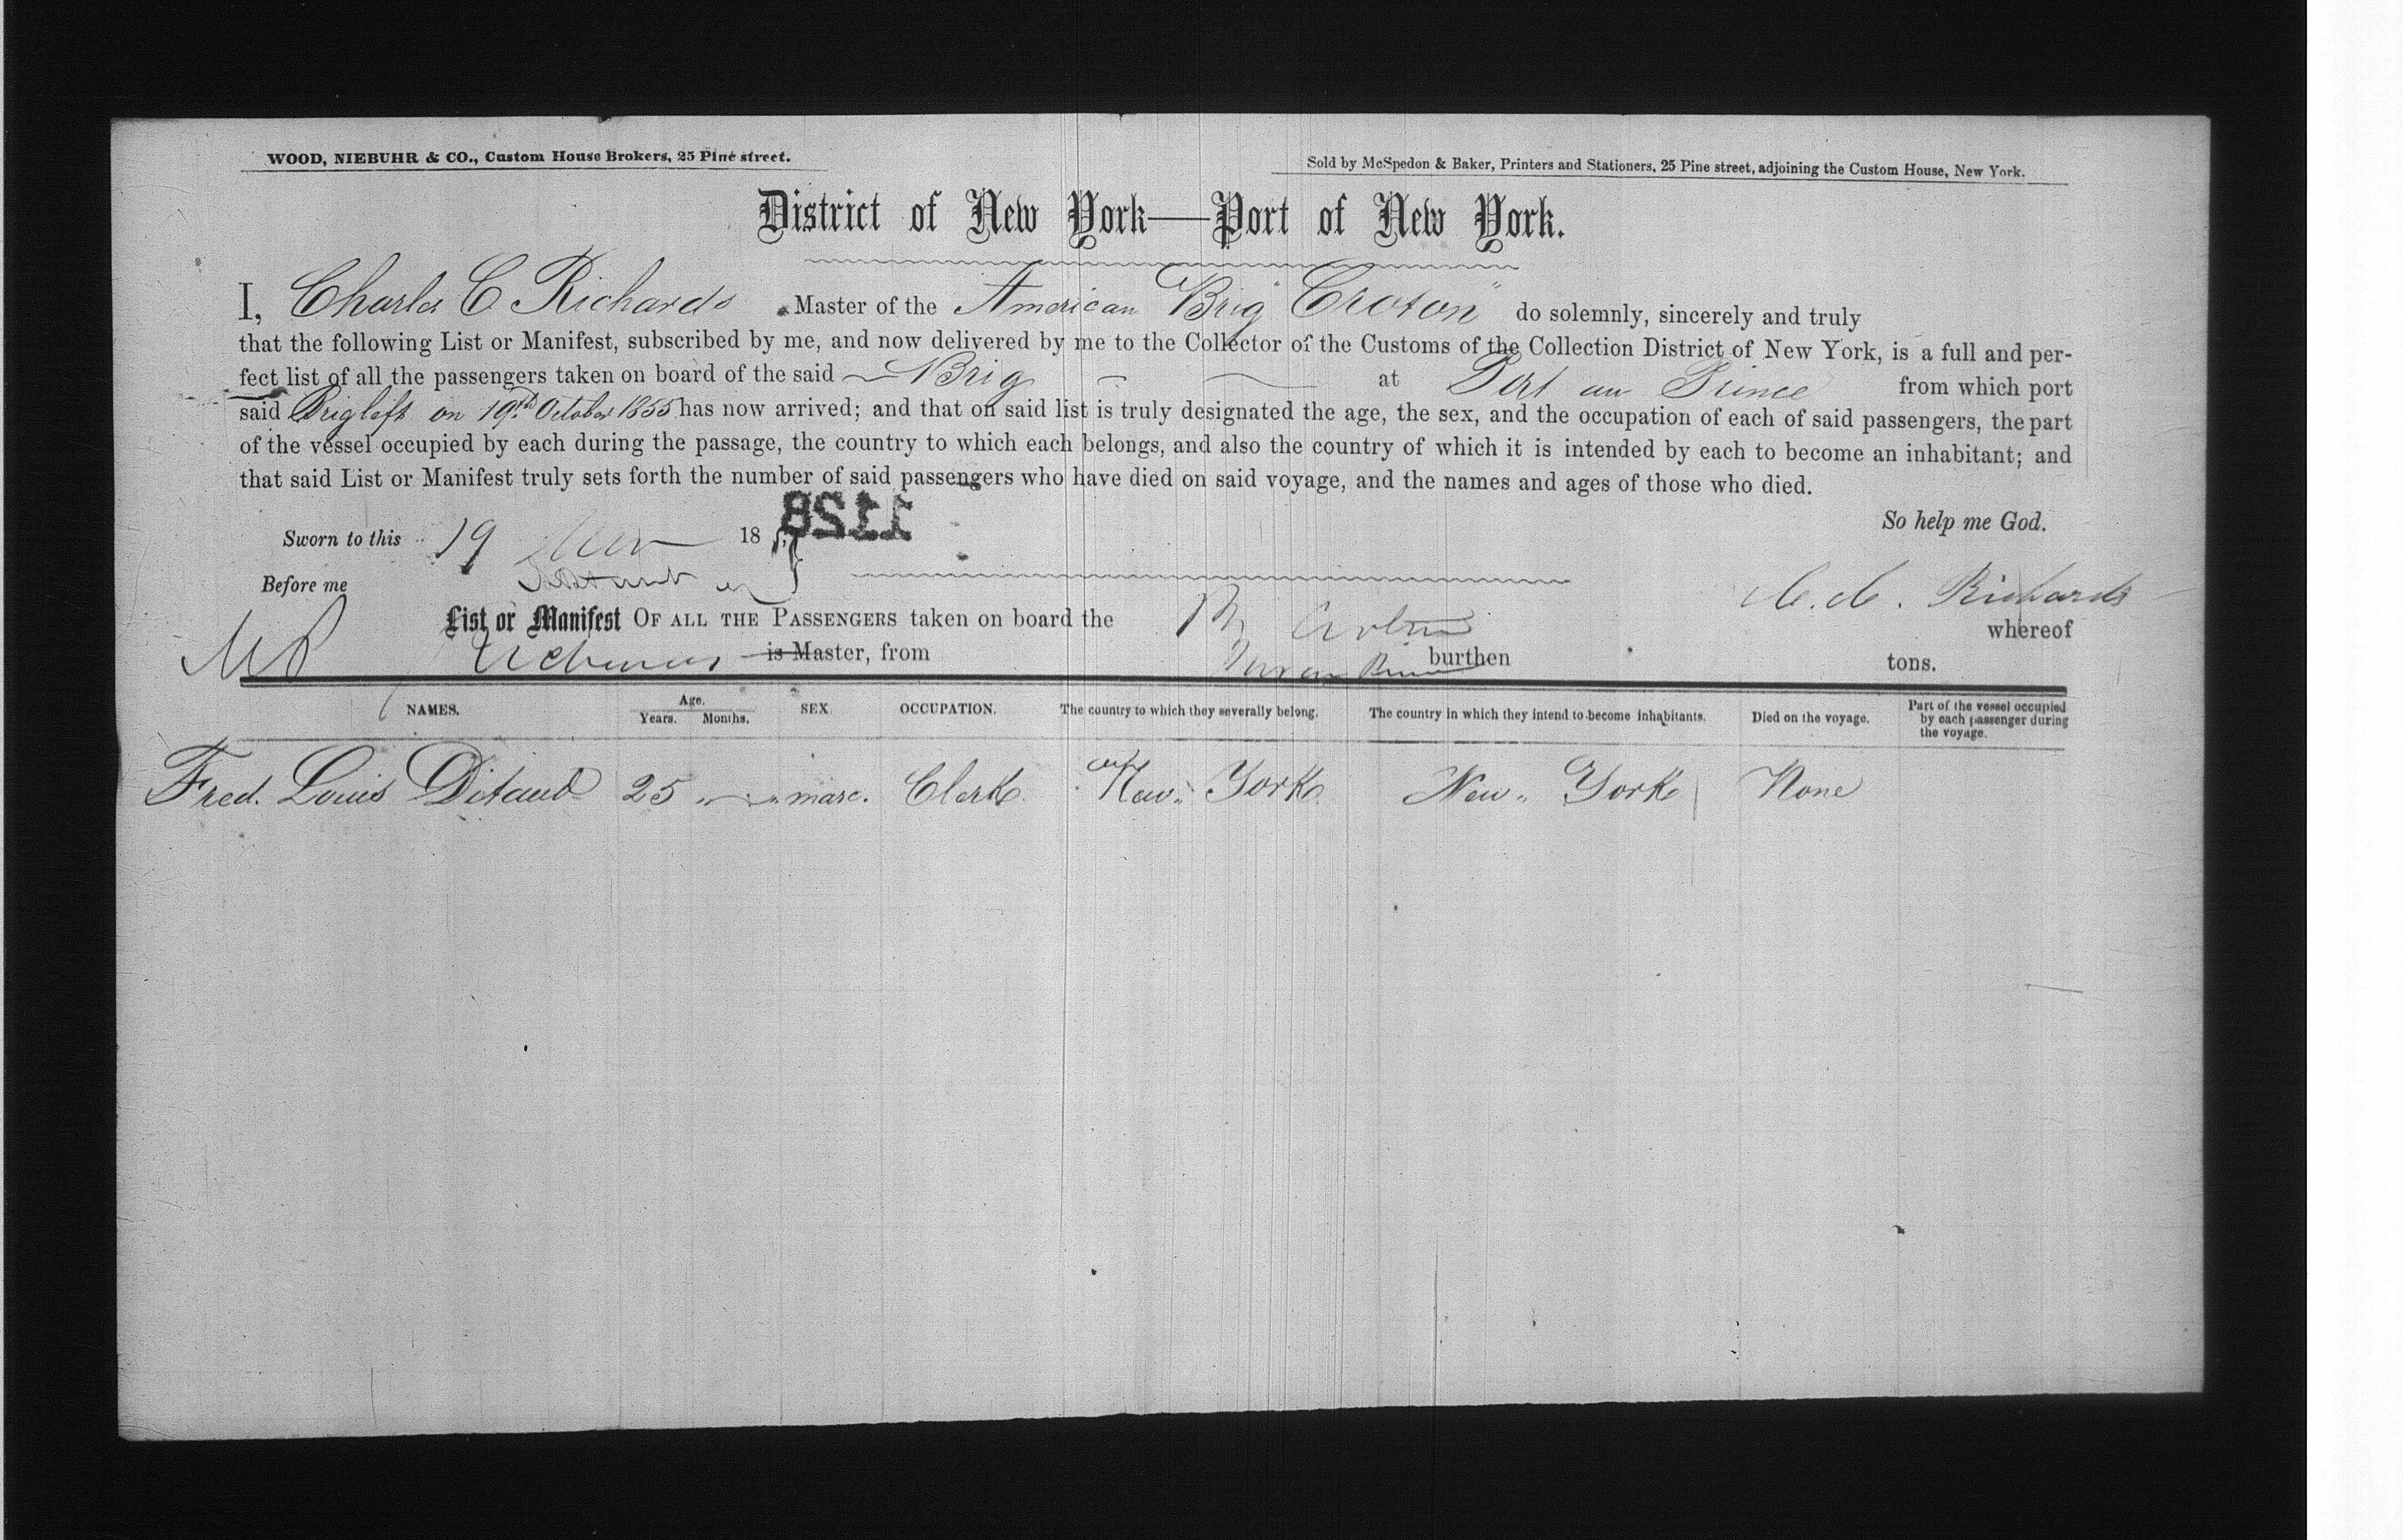 WOOD, NIEBUHR & CO., Custom House Brokers, 25 Pine street.
Sold by McSpedon & Baker, Printers and Stationers, 25 Pine street, adjoining the Custom House, New York.
District of New York—Port of New York.
I, Charles C Richards Master of the American Brig "Croton" do solemnly, sincerely and truly
that the following List or Manifest, subscribed by me, and now delivered by me to the Collector of the Customs of the Collection District of New York, is a full and per-
fect list of all the passengers taken on board of the said Brig at Port au Prince from which port
said Brig left on 19th October 1855 has now arrived; and that on said list is truly designated the age, the sex, and the occupation of each of said passengers, the part
of the vessel occupied by each during the passage, the country to which each belongs, and also the country of which it is intended by each to become an inhabitant; and
that said List or Manifest truly sets forth the number of said passengers who have died on said voyage, and the names and ages of those who died.
1128
So help me God.
Sworn to this 19 Nov 18
Before me
C. C. Richards
List or Manifest OF ALL THE PASSENGERS taken on board the whereof
is Master, from burthen tons.
NAMES. Age. Years. Months. SEX. OCCUPATION. The country to which they severally belong. The country in which they intend to become inhabitants. Died on the voyage. Part of the vessel occupied by each passenger during the voyage.
Fred. Louis Ditaud 25 Clerk New York New York None